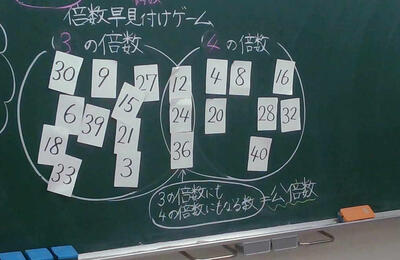 倍数早見付けゲーム
3の倍数
4の倍数
30 9 27 12 4 8 16
6 39 15 24 20 28 32
18 21 36 40
33 3
3の倍数にも
4の倍数にもなる数
=公倍数